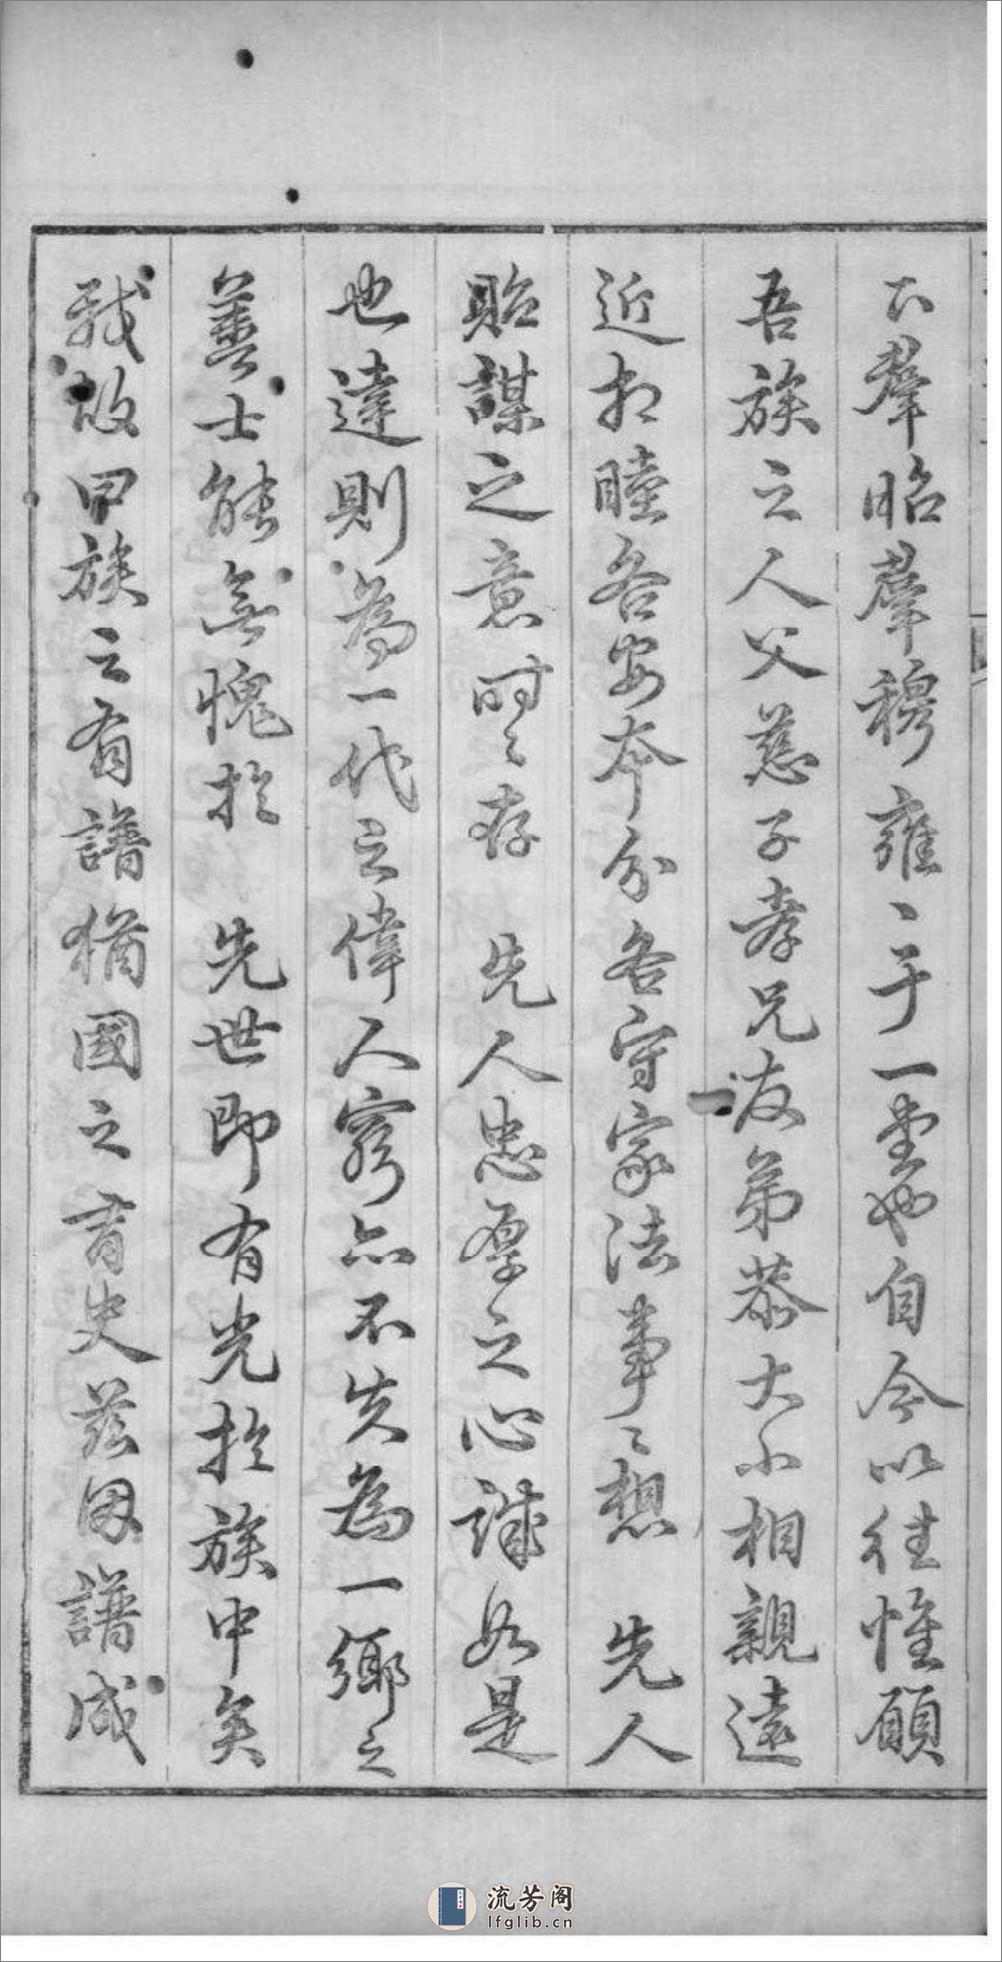 不羣昭羣穆雍〻于一堂也自今以往惟願
吾族之人父慈子孝兄友弟恭大小相親遠
近相睦各安本分各守家法事〻想 先人
貽謀之意時〻存 先人忠厚之心誠如是
也達則為一代之偉人窮亦不失為一鄉之
善士能無愧於 先世即有光於族中矣
哉故曰族之有譜猶國之有史茲因譜成
流芳阁
lfglib.cn